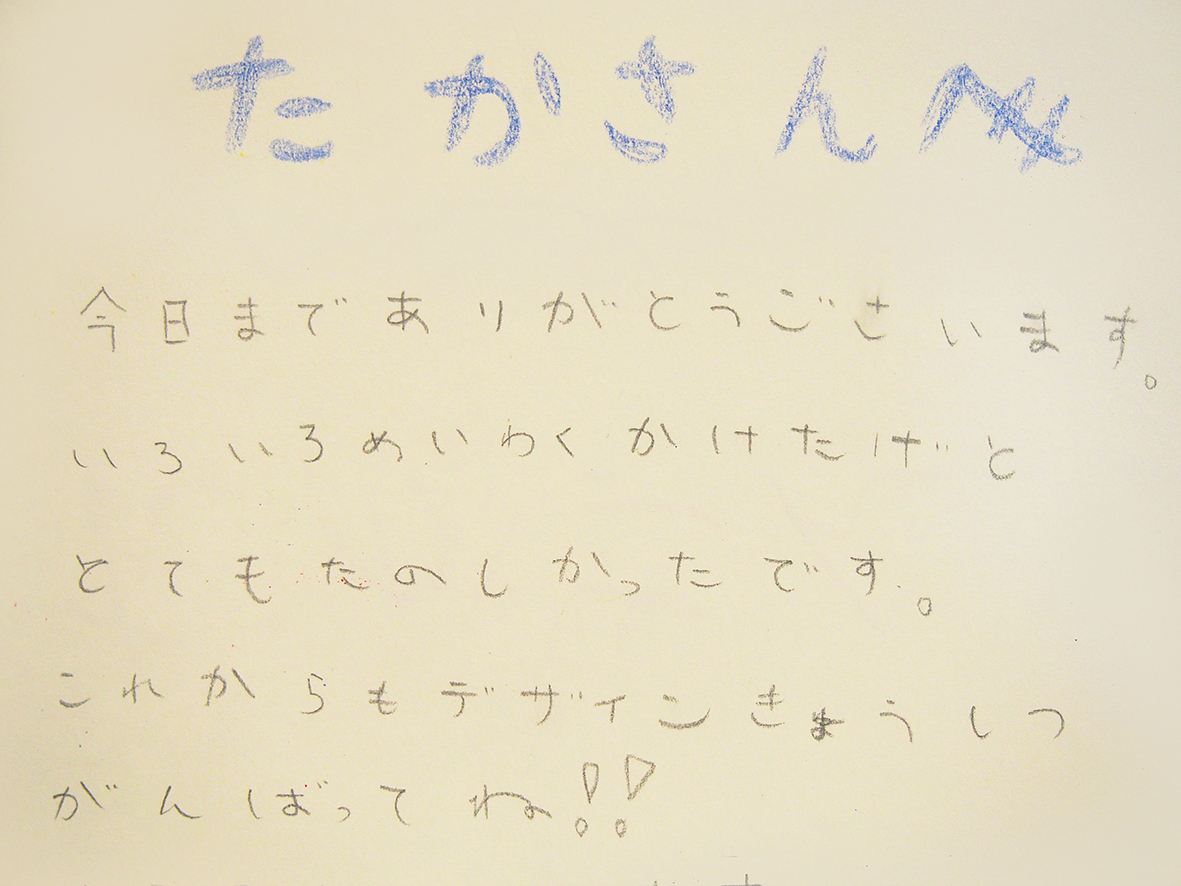 たかさんへ
今日までありがとうごさいます。
いろいろめいわくかけたけ゛ど
とてもたのしかったです。
これからもデザインきょうしつ
がんばってね!!